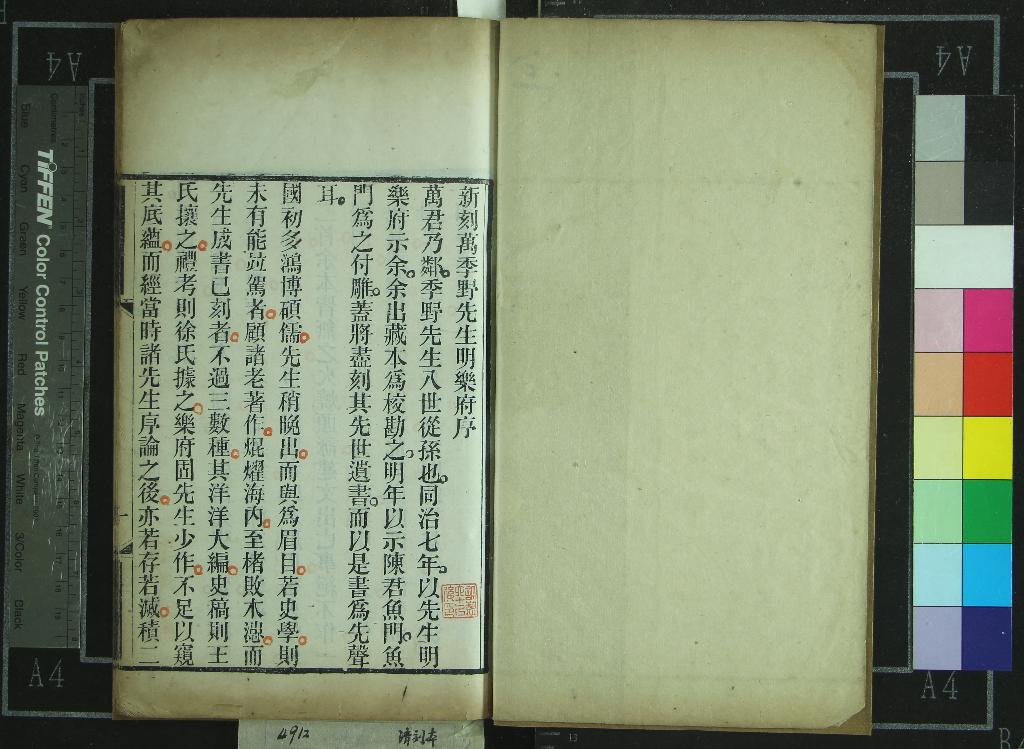 新刻萬季野先生明樂府序
萬君乃鄰季野先生八世從孫也同治七年以先生明
樂府示余余出藏本爲校勘之明年以示陳君魚門魚
門爲之付雕蓋將盡刻其先世遺書而以是書爲先聲
耳
國初多鴻博碩儒先生稍晚出而與爲眉目若史學則
未有能竝駕者顧諸老著作焜燿海內至楮敗木漶而
先生成書已刻者不過三數種其洋洋大編史稿則王
氏攘之禮考則徐氏據之樂府固先生少作不足以窺
其底蘊而經當時諸先生序論之後亦若存若滅積二
A4
A4
A4
A4
TIFFEN Color Control Patches
Blue Cyan Green Yellow Red Magenta White 3/Color Black
4912
清刻本